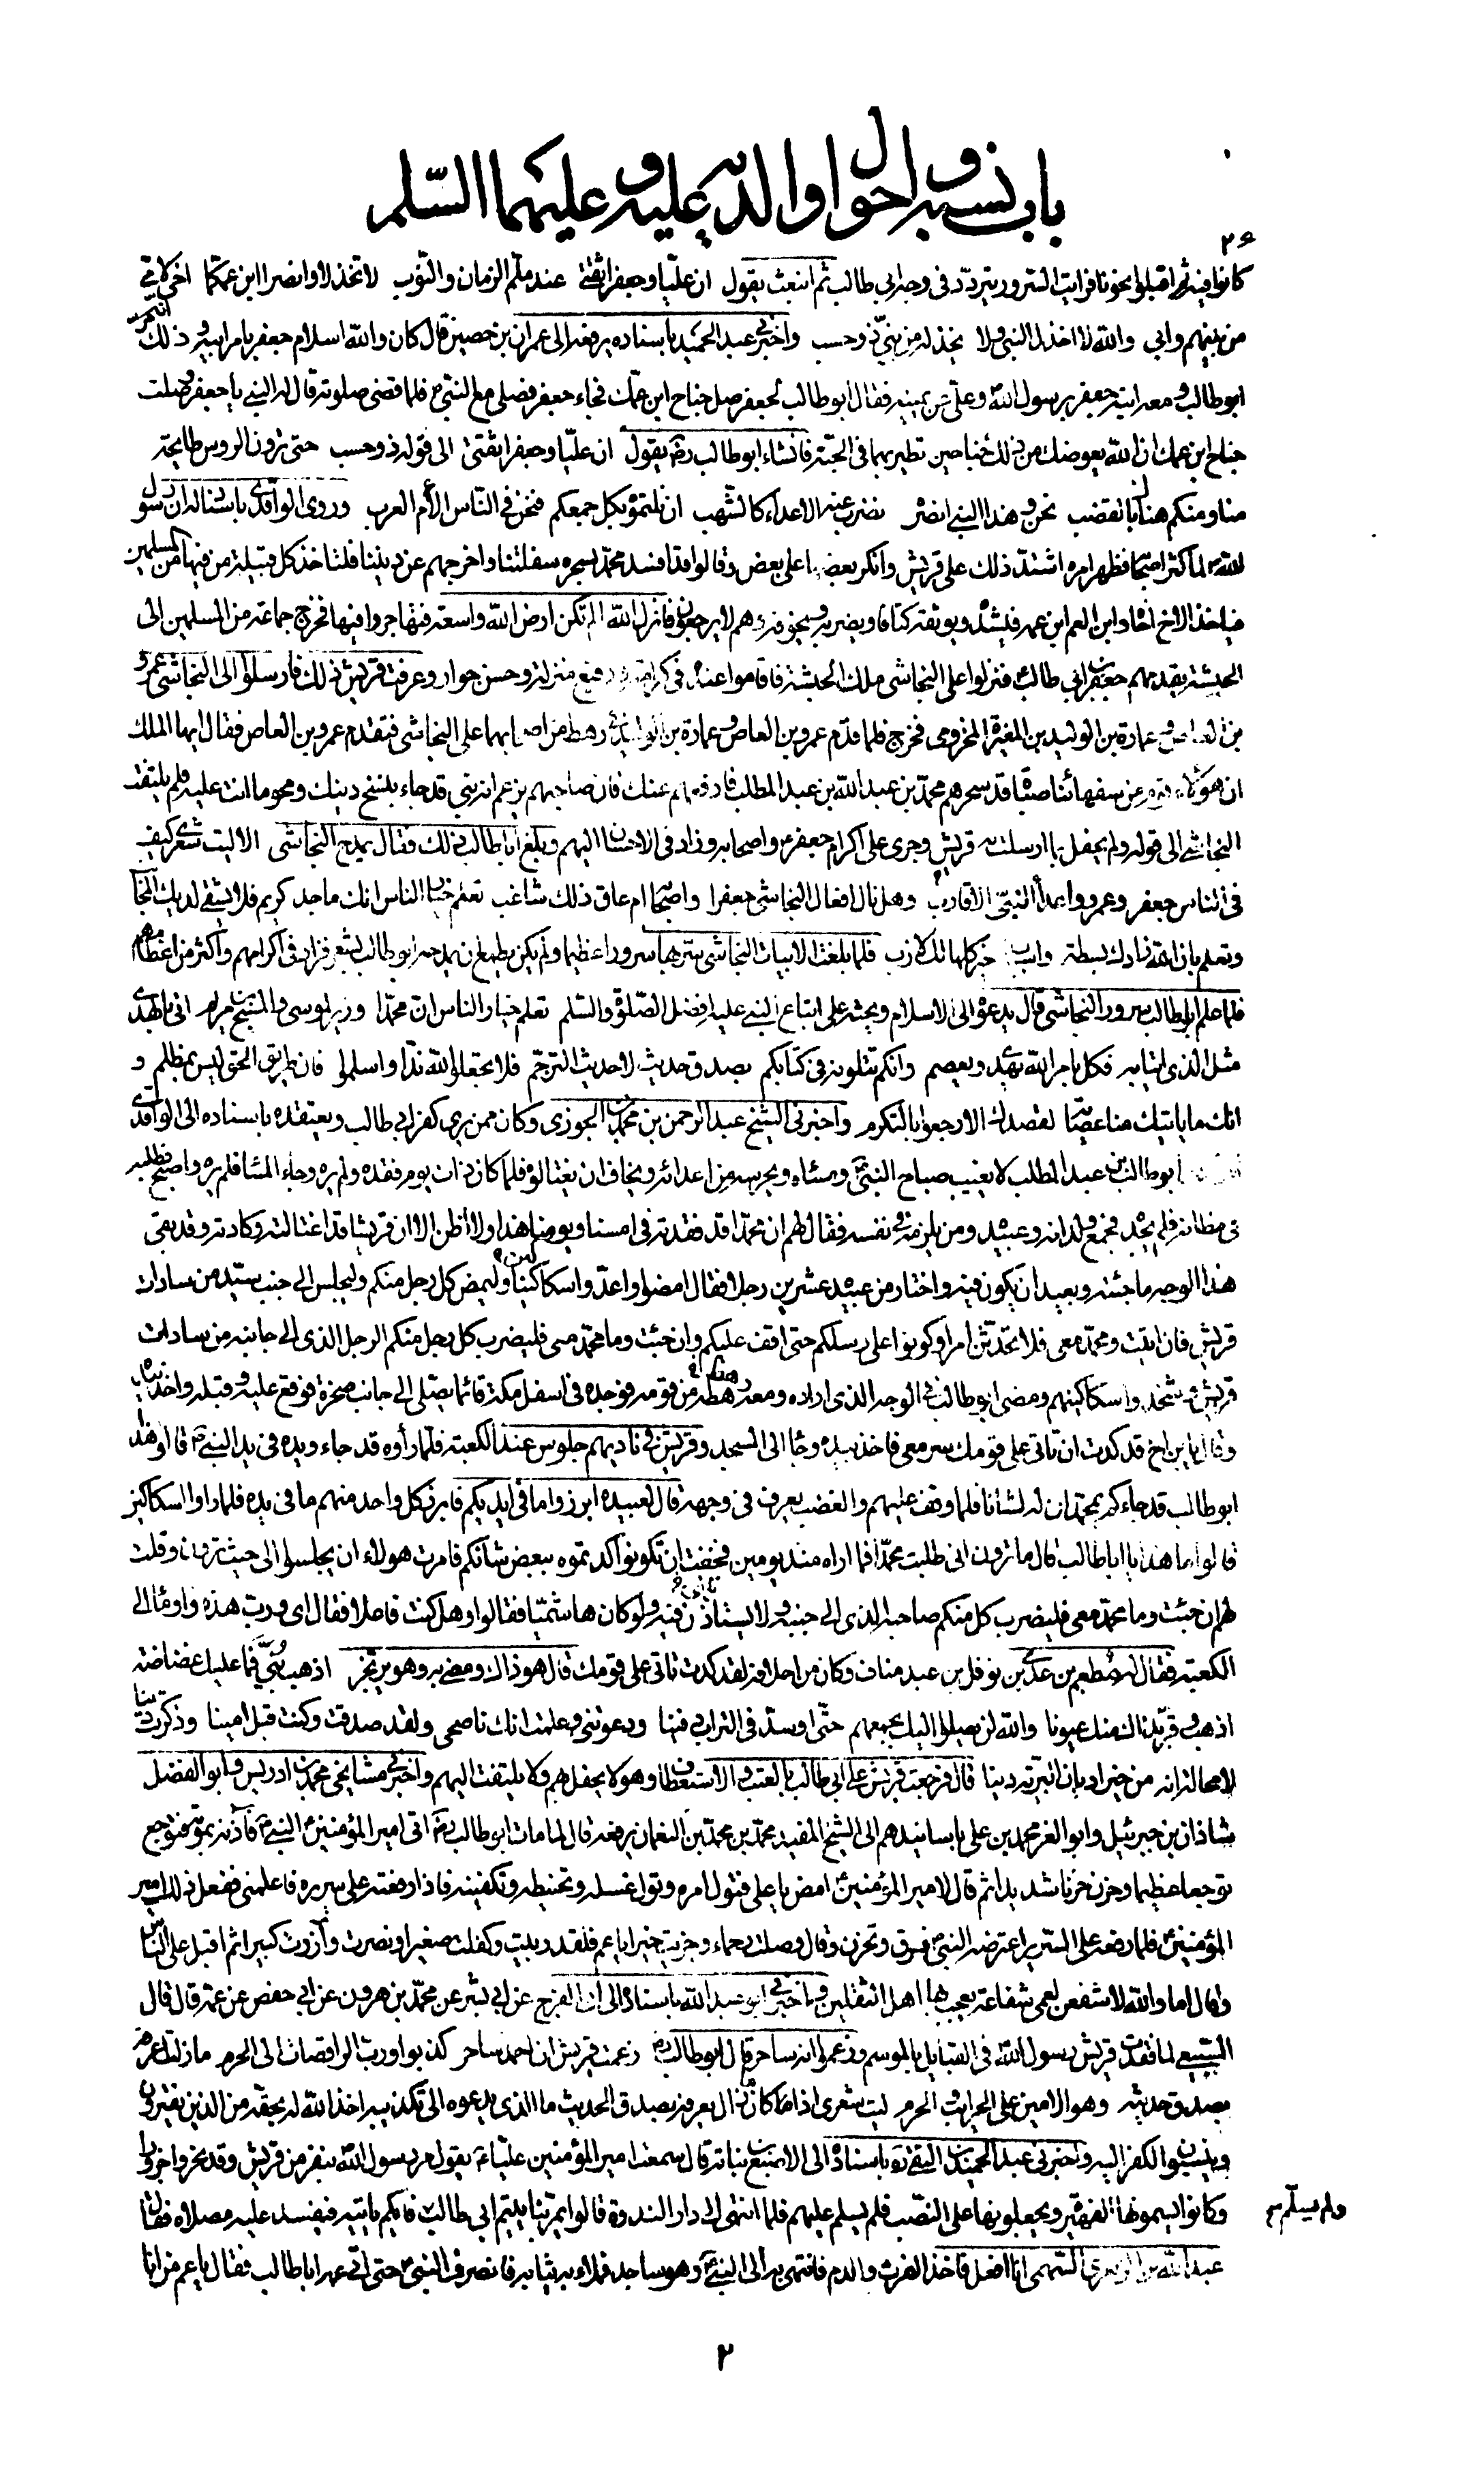 باب نسبه و احوال والديه عليه و عليهما السّلم
٢۶
كانوا فيه ثم اقبلوا نحونا فرايت السرور يتردد في وجه ابي طالب ثم انبعث يقول ان عليّا وجعفرا ثقتي عند ملم الزمان والنوب لا تخذلا وانصرا ابن عمكما اخي لامي
من بينهم وابي والله لا اخذل النبي ولا يخذله من بنيّ ذو حسب واخبرني عبد الحميد باسناده يرفعه الى عمران بن حصين قال كان والله اسلام جعفر بامر ابيه و ذلك انه مر
ابو طالب و معه ابنه جعفر برسول اللهص وعلي عن يمينه فقال ابو طالب لجعفر صل جناح ابن عمك فجاء جعفر فصلى مع النبيص فلما قضى صلوته قال له النبي يا جعفر وصلت
جناح ابن عمك ان الله يعوضك من ذلك جناحين تطير بهما في الجنة فانشاء ابو طالب رضه يقول ان عليّا وجعفرا ثقتي الى قوله ذو حسب حتى ترون الروس طايحة
منا ومنكم هناك بالقضب نحن و هذا النبي انصره نضرب عنه الاعداء كالشهب ان نلتموه بكل جمعكم فنحن في الناس الأم العرب وروى الواقدي باسناد له ان رسول
اللهص لما كثر اصحابه فظهر امره اشتد ذلك على قريش وانكر بعضها على بعض وقالوا قد افسد محمد بسحره سفلتنا واخرجهم عن ديننا فلتاخذ كل قبيلة من فيها من المسلمين
فياخذ الاخ اخاه وابن العم ابن عمه فيشده ويوثقه كتافا ويضربه ويخوفه وهم لا يرجعون فانزل الله الم تكن ارض الله واسعة فتهاجروا فيها فخرج جماعة من المسلمين الى
الحبشة يقدمهم جعفر بن ابي طالب فنزلوا على النجاشي ملك الحبشة فاقاموا عنده في كرامة و رفيع منزلة وحسن جوار وعرفت قريش ذلك فارسلوا الى النجاشي عمرو
بن العاص و عمارة بن الوليد بن المغيرة المخزومي فخرج فلما قدم عمرو بن العاص و عمارة بن الوليد في رهط من اصحابهما على النجاشي فتقدم عمرو بن العاص فقال ايها الملك
ان هؤلاء قوم من سفهائنا صباة قد سحرهم محمد بن عبد الله بن عبد المطلب فادفعهم عنك فان صاحبهم يزعم انه نبي قد جاء بنسخ دينك ومحو ما انت عليه فلم يلتفت
النجاشي الى قوله ولم يحفل بما ارسلت به قريش وجرى على اكرام جعفرع واصحابه وزاد في الاحسان اليهم وبلغ ابا طالب ذلك فقال يمدح النجاشي الا ليت شعري كيف
في الناس جعفر وعمرو واعداء النبيّ الاقارب وهل نال افعال النجاشي جعفرا واصحابه ام عاق ذلك شاغب تعلم خيار الناس انك ماجد كريم فلا يشقى لديك المجانب
وتعلم بان الله زادك بسطة واسباب خير كلها لك لازب فلما بلغت الابيات النجاشي سر بها سرورا عظيما ولم يكن يطمع ان يمدحه ابو طالب بشعر فزاد في اكرامهم واكثر من اعظامهم
فلما علم ابو طالب سرور النجاشي قال يدعوه الى الاسلام ويحثه على اتباع النبي عليه افضل الصلوة والسّلم تعلم خيار الناس ان محمدا وزير لموسى والمسيح بن مريم اتى بالهدى
مثل الذي اتيا به فكل بامر الله يهدي ويعصم وانكم تتلونه في كتابكم بصدق حديث لا حديث الترجم فلا تجعلوا لله ندا واسلموا فان طريق الحق ليس بمظلم و
انك ما ياتيك منا عصابة لقصدك الا ارجعوا بالتكرم واخبرني الشيخ عبد الرحمن بن محمد بن الجوزي وكان ممن يري كفر ابي طالب ويعتقده باسناده الى الواقدي
ابو طالب بن عبد المطلب لا يغيب صباح النبيص ومساه ويحرسه من اعدائه ويخاف ان يغتالوه فلما كان ذات يوم فقده ولم يره وجاء المسا فلم يره واصبح فطلبه
في مظانه فلم يجده فجمع ولدانه وعبيده ومن يلزمه في نفسه فقال لهم ان محمدا قد فقدته في امسنا ويومنا هذا ولا اظن الا ان قريشا قد اغتالته وكادته وقد بقي
هذا الوجه ما جئته وبعيد ان يكون فيه واختار من عبيده عشرين رجلا فقال امضوا واعدّوا سكاكينا وليمض كل رجل منكم وليجلس الى جنب سيّد من سادات
قريش فان اتيت ومحمد معي فلا تحدثن امرا وكونوا على رسلكم حتى اقف عليكم وان جئت وما محمد معي فليضرب كل رجل منكم الرجل الذي الى جانبه من سادات
قريش فمضوا وشحذوا سكاكينهم ومضى ابو طالب في الوجه الذي اراده ومعه رهطه من قومه فوجده في اسفل مكة قائما يصلي الى جانب صخرة فوقع عليه و قبله واخذ بيده
وقال يا بن اخ قد كدت ان تاتي على قومك سر معي فاخذ بيده وجاء الى المسجد وقريش في ناديهم جلوس عند الكعبة فلما رأوه قد جاء ويده في يد النبيص قالوا هذا
ابو طالب قد جاءكم بمحمد ان له لشانا فلما وقف عليهم والغضب يعرف في وجهه قال لعبيده ابرزوا ما في ايديكم فابرز كل واحد منهم ما في يده فلما راوا السكاكين
قالوا ما هذا يا ابا طالب قال ما ترون انى طلبت محمدا فما اراه منذ يومين فخفت ان تكونوا كدتموه ببعض شانكم فامرت هولاء ان يجلسوا الى حيث ترون وقلت
لهم ان جئت وما محمد معي فليضرب كل منكم صاحبه الذي الى جنبه و لا يستاذن فيه ولو كان هاشميّا فقالوا وهل كنت فاعلا فقال اي و رب هذه واومأ الى
الكعبة فقال له مطعم بن عدي بن نوفل بن عبد مناف وكان من احلافه لقد كدت تاتي على قومك قال هو ذاك ومضى به وهو يرتجز اذهب بنيّ فما عليك غضاضة
اذهب و قر بذاك منك عيونا والله لن يصلوا اليك بجمعهم حتّى اوسد في التراب دفينا ودعوتني وعلمت انك ناصحي ولقد صدقت وكنت قبل امينا وذكرت دينا
لا محالة انه من خير اديان البرية دينا قال فرجعت قريش على ابي طالب بالعتب و الاستعطاف وهو لا يحفل بهم ولا يلتفت اليهم واخبرني مشايخي محمد بن ادريس و ابو الفضل
شاذان بن جبرئيل وابو العز محمد بن علي باسانيدهم الى الشيخ المفيد محمد بن محمد بن النعمان يرفعه قال لما مات ابو طالب رضه اتى امير المؤمنينع النبيص فآذنه بموته فتوجع
توجعا عظيما وحزن حزنا شديدا ثم قال لامير المؤمنينع امض يا علي فتول امره وتول غسله وتحنيطه وتكفينه فاذا رفعته على سريره فاعلمني ففعل ذلك امير
المؤمنينع فلما رفعه على السرير اعترضه النبيص فرق وتحزن وقال وصلت رحماء وجزيت خيرا يا عم فلقد ربيت وكفلت صغيرا ونصرت وآزرت كبيرا ثم اقبل على الناس
وقال اما والله لاشفعن لعمي شفاعة يعجب بها اهل الثقلين و اخبرني ابو عبد الله باسناده الى ابي الفرج عن ابي بشر عن محمد بن هرون عن ابي حفص عن عمه قال قال
السبيعي لما فقدت قريش رسول الله في القبايل بالموسم وزعموا انه ساحر قال ابو طالب رضه زعمت قريش ان احمد ساحر كذبوا ورب الراقصات الى الحرم ما زلت اعرفه
بصدق حديثه وهو الامين على الحرايب و الحرم ليت شعري اذاما كان ال يعرفه بصدق الحديث ما الذي يدعوه الى تكذيبه اخذ الله له بحقه من الذين يفترون
وينسبون الكفر اليه واخبرني عبد الحميد بن التقي ره باسناده الى الاصبغ بن نباته قال سمعت امير المؤمنين عليّا ع يقول مر رسول اللهص بنفر من قريش وقد نحروا جزورا
وكانوا يسمونها الفهيرة ويجعلونها على النصب فلم يسلم عليهم فلما انتهى الى دار الندوة قالوا يمر بنا يتيم ابي طالب فايكم ياتيه فيفسد عليه مصلاه فقال
ولم يسلّم
عبد الله بن الزبعرى السهمي انا افعل فاخذ الفرث والدم فانتهى به الى النبيص وهو ساجد فملاء به ثيابه فانصرف النبيص حتى اتى عمه ابا طالب فقال يا عم من انا
٢